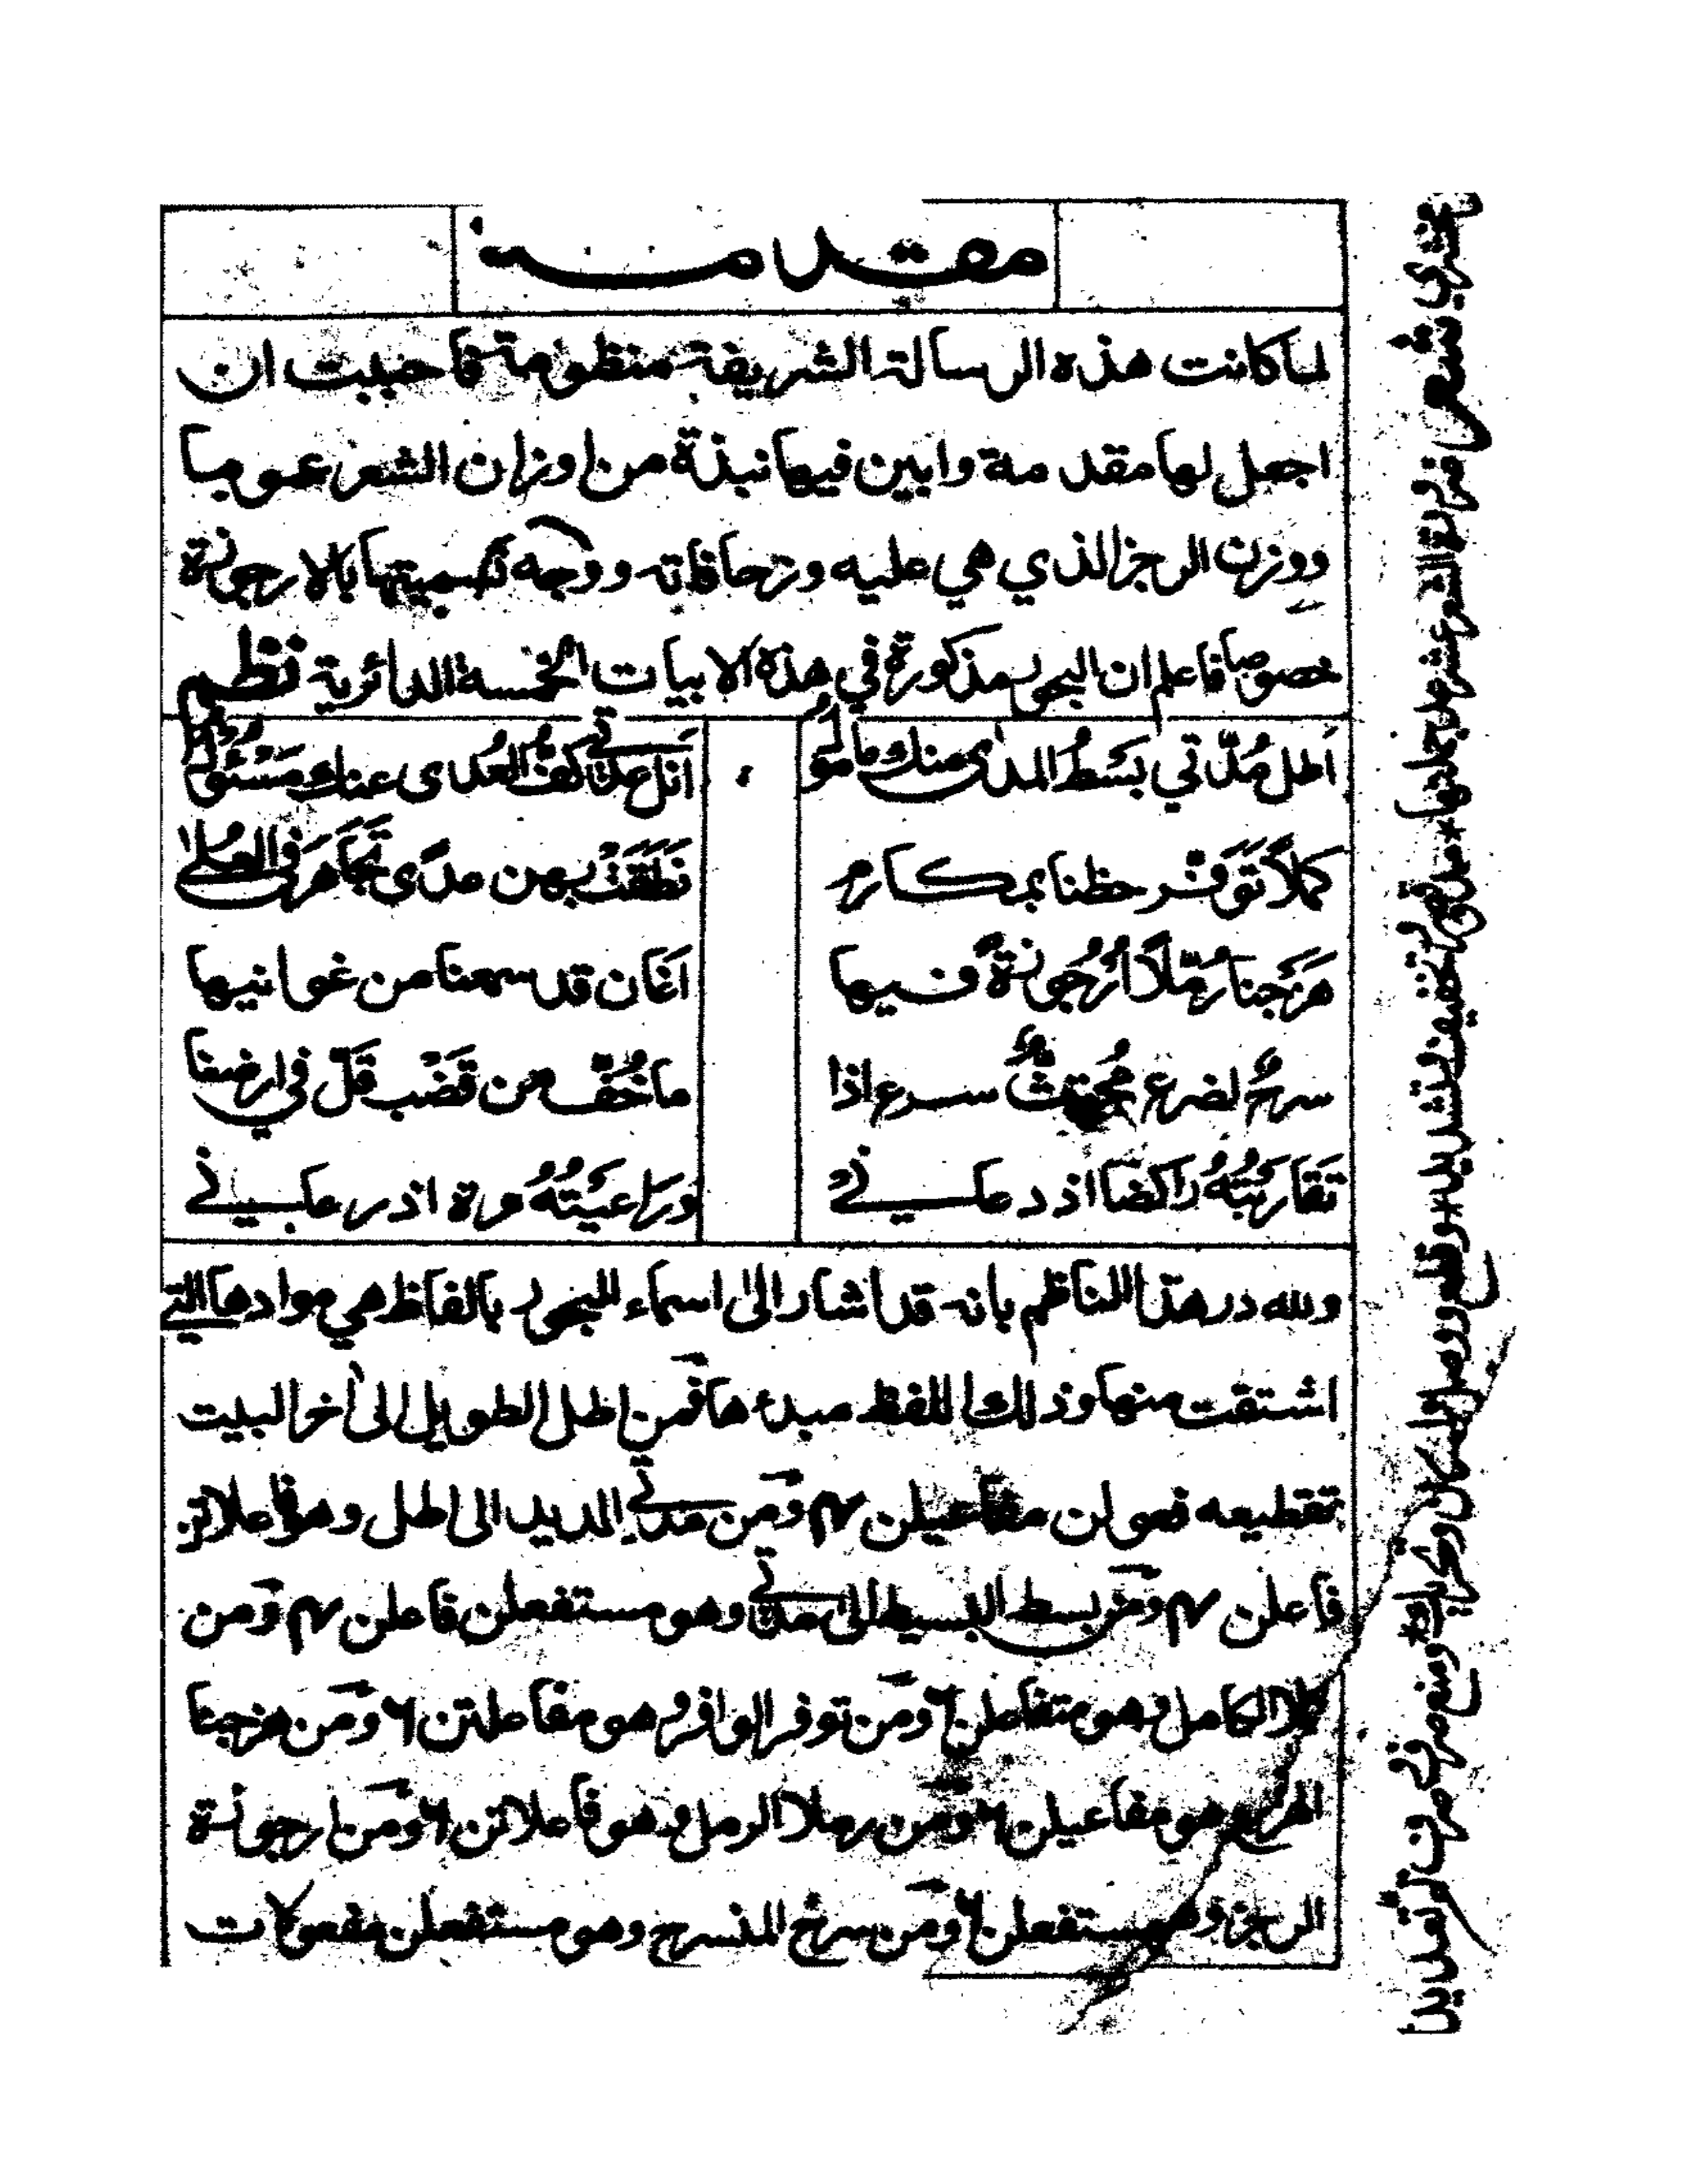 مقدمة
لما كانت هذه الرسالة الشريفة منظومة فاحببت ان
اجعل لها مقدمة وابين فيها نبذة من اوزان الشعر عموما
ووزن الرجز الذي هي عليه وزحافاته ووجه تسميتها بالارجوزة
خصوصا فاعلم ان البحور مذكورة في هذه الابيات الخمسة الدائرية نظم
اَطل مُدّتي بَسَطُ المدى منك مامولُ
اَنل عدتي كفُّ العُدى عنك مَسْئولُ
كملاً تَوَفّر حظنا بمكارم
نَطَقَتْ بهن مدًى تجَاهَرَ في العُلى
هَزَجنا رمّلاً ارْجُوزةً فيها
اَغان قد سمعنا من غوانيها
سرحٌ لضرع مُجتثٌّ سرع اذا
ما خُفّ من قَضْب قَلّ في ارضنا
تَقَاربتُهُ راكضا اذ دعاني
ورَاعَيْتُهُ مرة اذ رعاني
ولله در هذا الناظم بانه قد اشار الى اسماء البحور بالفاظ هي موادها التي
اشتقت منها وذلك اللفظ مبدءها فمن اطل الطويل الى اخر البيت
تقطيعه فعولن مفاعيلن ٤ ومن مدتي المديد الى اطل وهو فاعلاتن
فاعلن ٤ ومن بسط البسيط الى مدتي وهو مستفعلن فاعلن ٤ ومن
كملا الكامل وهو متفاعلن ٦ ومن توفر الوافر وهو مفاعلتن ٦ ومن هزجنا
الهزج وهو مفاعيلن ٦ ومن رملا الرمل وهو فاعلاتن ٦ ومن ارجوزة
الرجز وهو مستفعلن ٦ ومن سرح المنسرح وهو مستفعلن مفعولات